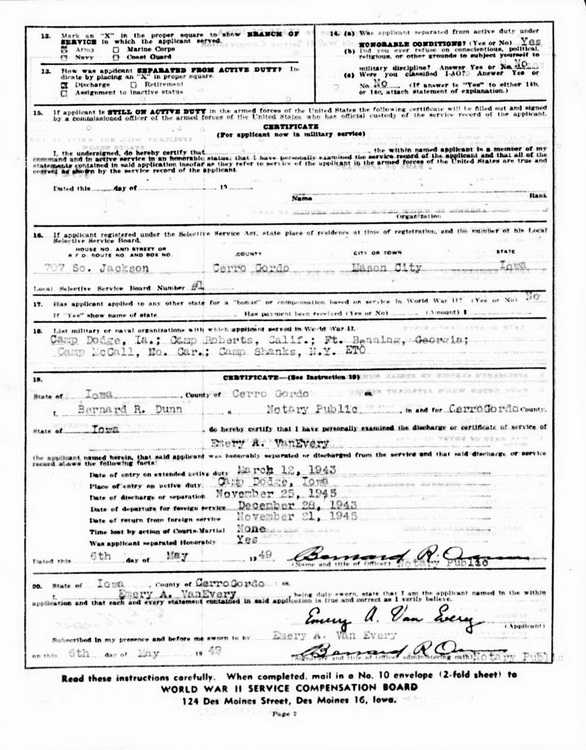 12. Mark an "X" in the proper square to show BRANCH OF
SERVICE in which the applicant served.
☒ Army ☐ Marine Corps
☐ Navy ☐ Coast Guard
13. How was applicant SEPARATED FROM ACTIVE DUTY? In-
dicate by placing an "X" in proper square.
☒ Discharge ☐ Retirement
☐ Assignment to inactive status
14. (a) Was applicant separated from active duty under
HONORABLE CONDITIONS? (Yes or No) Yes
(b) Did you ever refuse on conscientious, political,
religious, or other grounds to subject yourself to
military discipline? Answer Yes or No. No
(c) Were you classified 1-AO? Answer Yes or
No. No (If answer is "Yes" to either 14b,
or 14c, attach statement of explanation.)
15. If applicant is STILL ON ACTIVE DUTY in the armed forces of the United States the following certificate will be filled out and signed
by a commissioned officer of the armed forces of the United States who has official custody of the service record of the applicant.
CERTIFICATE
(For applicant now in military service)
I, the undersigned, do hereby certify that , the within named applicant is a member of my
command and in active service in an honorable status; that I have personally examined the service record of the applicant and that all of the
statements contained in said application insofar as they refer to service of the applicant in the armed forces of the United States are true and
correct as shown by the service record of the applicant.
Dated this day of 19
Name Rank
(Organization)
16. If applicant registered under the Selective Service Act, state place of residence at time of registration, and the number of his Local
Selective Service Board.
HOUSE NO. AND STREET OR
R F D ROUTE NO AND BOX NO. COUNTY CITY OR TOWN STATE
707 So. Jackson Cerro Gordo Mason City Iowa
Local Selective Service Board Number #1
17. Has applicant applied to any other state for a "bonus" or compensation based on service in World War II? (Yes or No) No
If "Yes" show name of state Has payment been received (Yes or No) (Amount) $
18. List military or naval organizations with which applicant served in World War II.
Camp Dodge, Ia.; Camp Roberts, Calif.; Ft. Benning, Georgia;
Camp McCall, No. Car.; Camp Shanks, N.Y. ETO
19. CERTIFICATE—(See Instruction 19)
State of Iowa , County of Cerro Gordo ss.
I, Bernard R. Dunn , Notary Public , in and for CerroGordo County,
State of Iowa , do hereby certify that I have personally examined the discharge or certificate of service of
Emery A. VanEvery
(the applicant named herein, that said applicant was honorably separated or discharged from the service and that said discharge or service
record shows the following facts:
Date of entry on extended active duty March 12, 1943
Place of entry on active duty. Camp Dodge, Iowa
Date of discharge or separation November 25, 1945
Date of departure for foreign service December 28, 1943
Date of return from foreign service November 21, 1945
Time lost by action of Courts-Martial None
Was applicant separated Honorably Yes
Dated this 6th day of May 1949 Bernard R. Dunn
(Name and title of Officer) Notary Public
20. State of Iowa , County of CerroGordo ss.
I, Emery A. VanEvery being duly sworn, state that I am the applicant named in the within
application and that each and every statement contained in said application is true and correct as I verily believe.
Emery A. Van Every
(Applicant)
Subscribed in my presence and before me sworn to by Emery A. Van Every
on this 6th day of May 1949 Bernard R. Dunn
Notary Public
Read these instructions carefully. When completed, mail in a No. 10 envelope (2-fold sheet) to
WORLD WAR II SERVICE COMPENSATION BOARD
124 Des Moines Street, Des Moines 16, Iowa.
Page 2